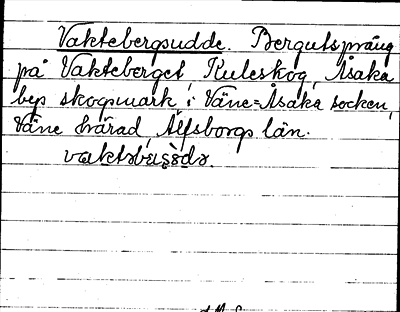 Vaktebergsudde. Bergutspräng
på Vakteberget Kuleskog, Åsaka
bep skogsmark, i Väne=Åsaka socken,
Väne härad Älfsborgs län.